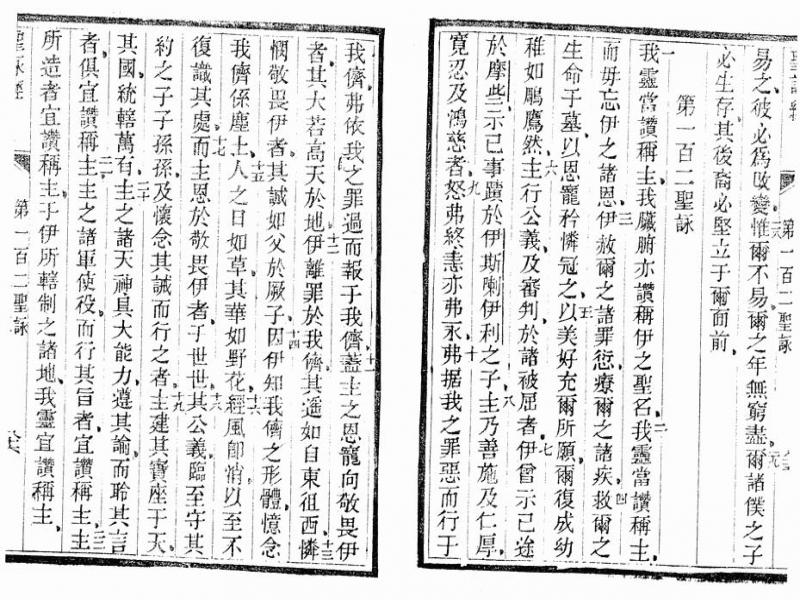 聖詠經
第一百二聖詠
易之彼必爲改變惟爾不易爾之年無窮盡爾諸僕之子
必生存其後裔必堅立于爾面前
第一百二聖詠
一我靈當讚稱主我臟腑亦讚稱伊之聖名二我靈當讚稱主
而毋忘伊之諸恩三伊赦爾之諸罪愆療爾之諸疾四救爾之
生命于墓以恩寵矜憐冠之五以美好充爾所願爾復成幼
稚如鵰鷹然六主行公義及審判於諸被屈者七伊曾示己途
於摩些示己事蹟於伊斯喇伊利之子八主乃善施及仁厚
寬忍及鴻慈者九怒弗終恚亦弗永十弗据我之罪惡而行于
我儕弗依我之罪過而報于我儕十一蓋主之恩寵向敬畏伊
者其大若高天於地十二伊離罪於我儕其遥如自東徂西十三憐
憫敬畏伊者其誠如父於厥子十四因伊知我儕之形體憶念
我儕係塵土十五人之日如草其華如野花十六經風卽悄以至不
復識其處十七而主恩於敬畏伊者于世世十八其公義臨至守其
約之子子孫孫及懷念其誡而行之者十九主建其寶座于天
其國統轄萬有二十主之諸天神具大能力遵其諭而聆其言
者俱宜讚稱主二一主之諸軍使役而行其旨者宜讚稱主二二主
所造者宜讚稱主于伊所轄制之諸地我靈宜讚稱主
聖詠經
第一百二聖詠